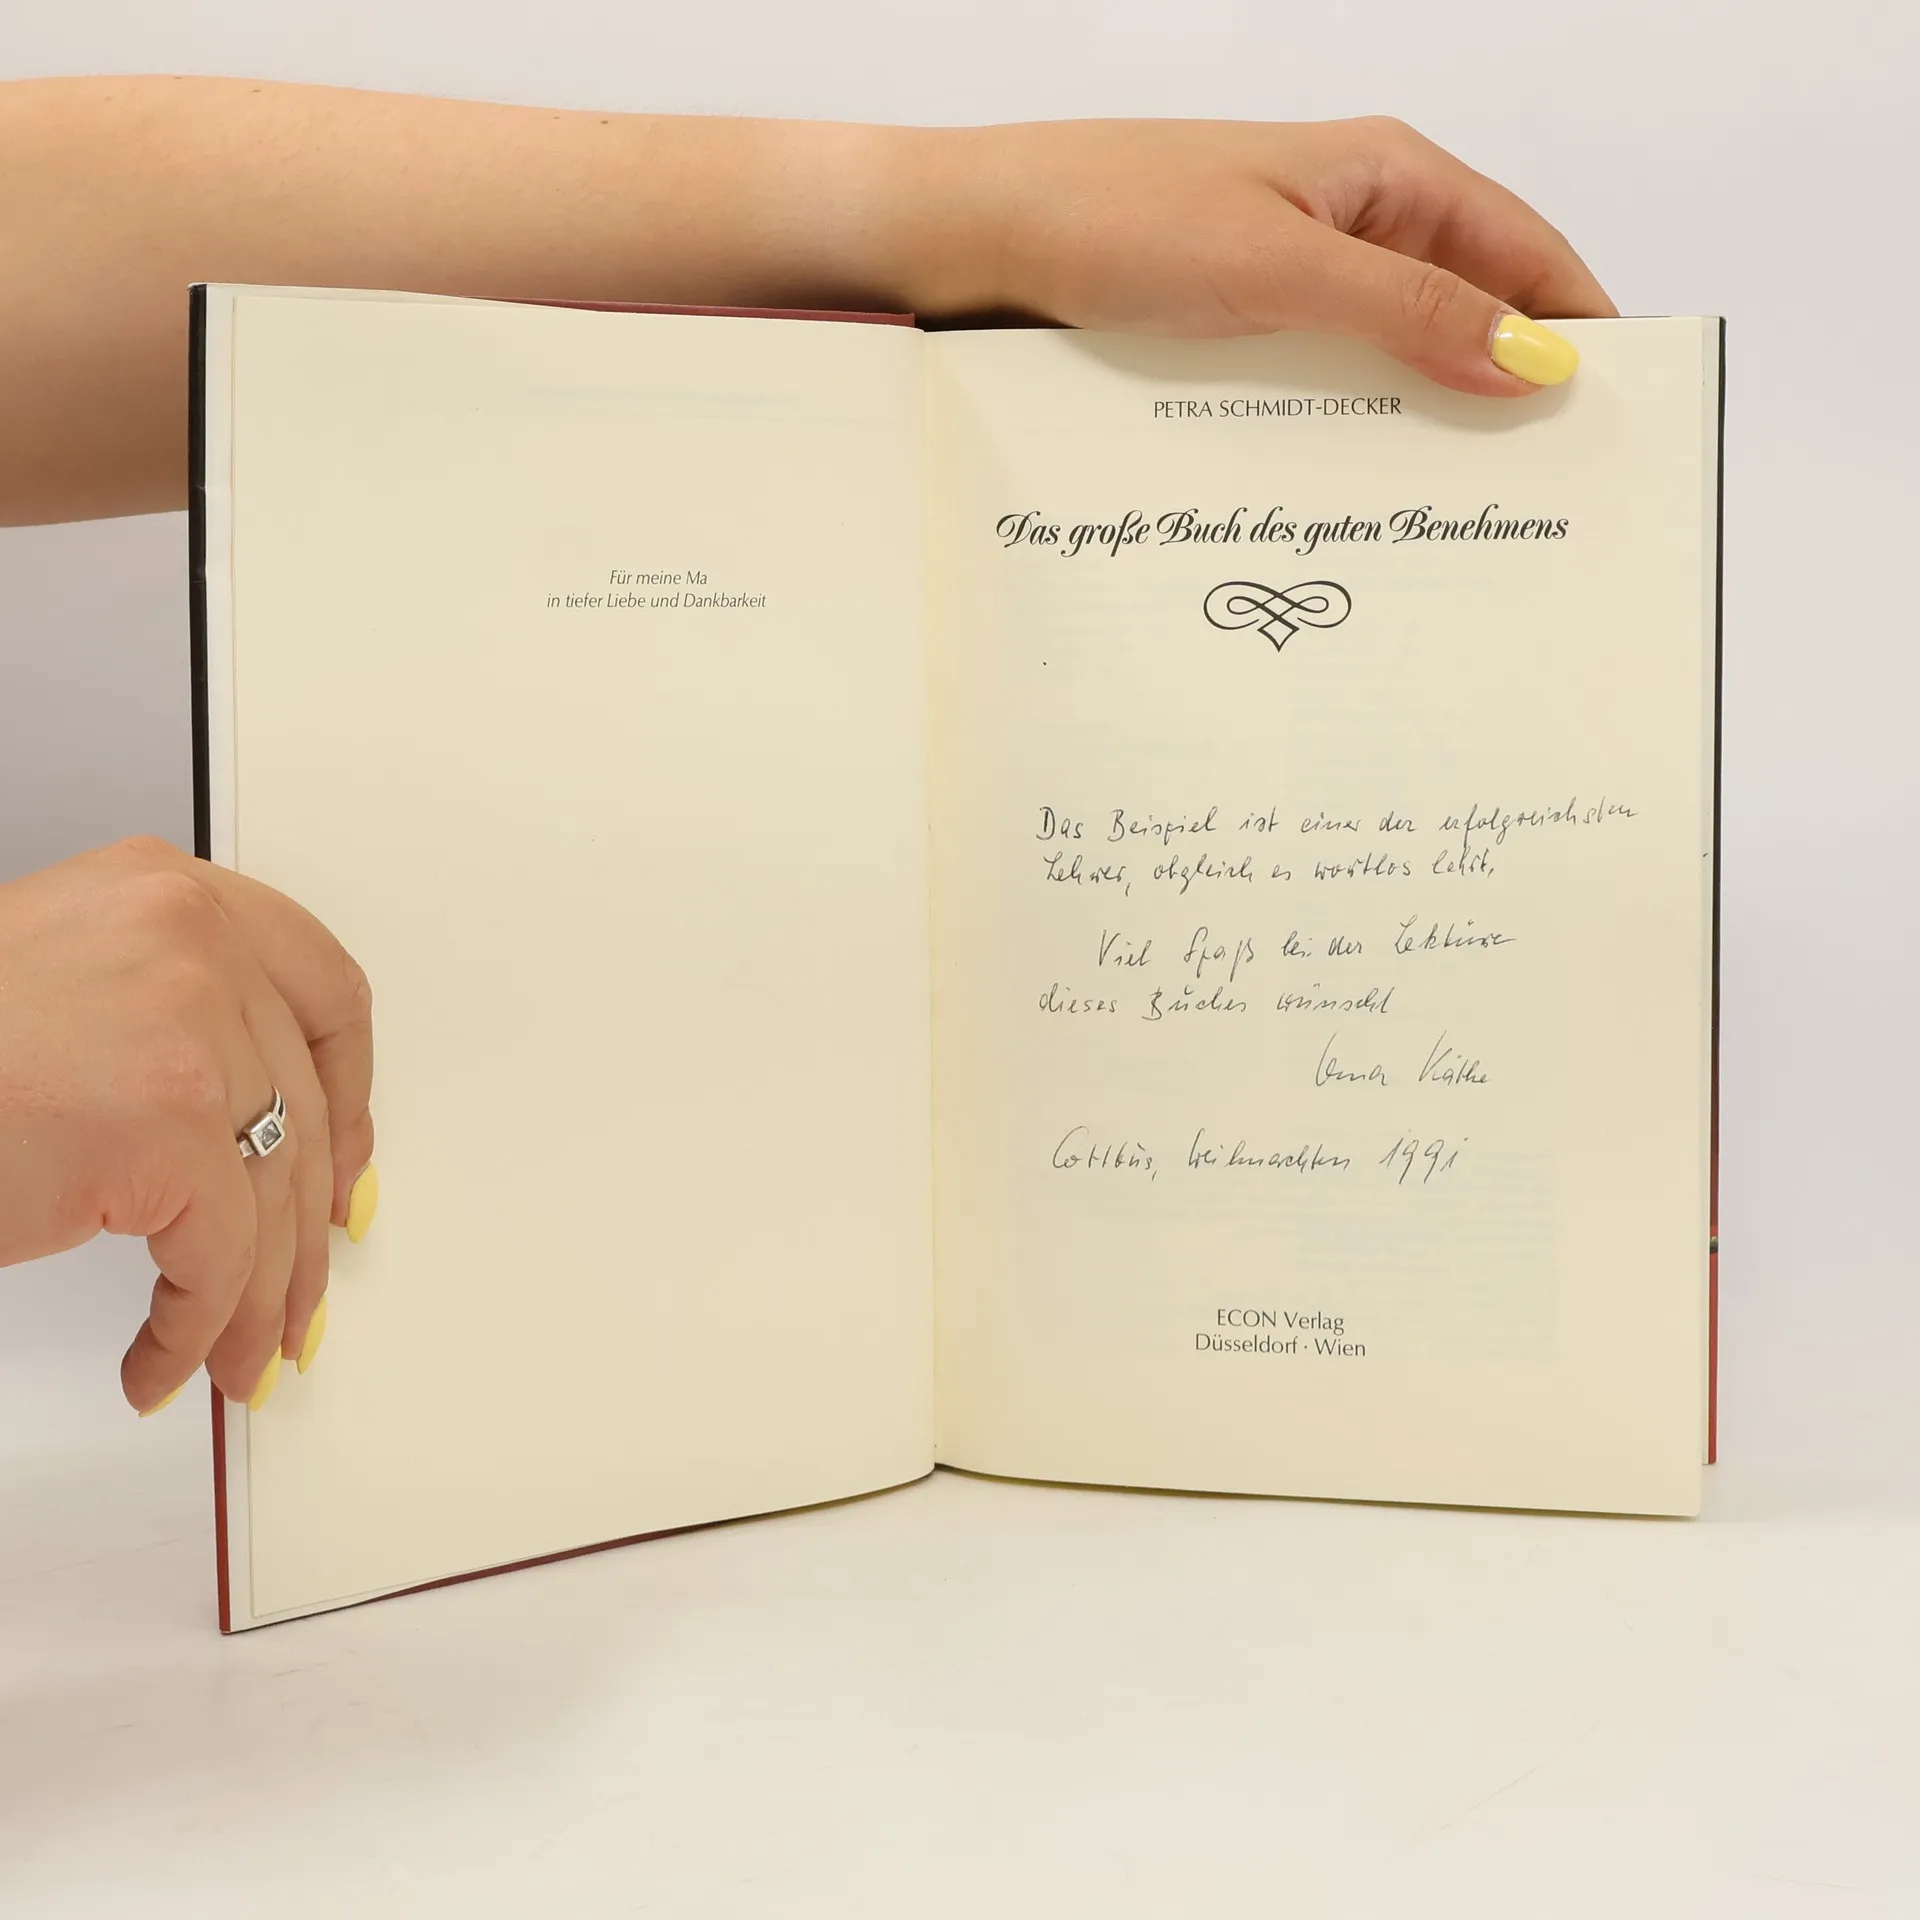 Für meine Ma
in tiefer Liebe und Dankbarkeit
PETRA SCHMIDT-DECKER
Das große Buch des guten Benehmens
Das Beispiel ist einer der erfolgreichsten
Lehrer, obgleich es wortlos lehrt.
Viel Spaß bei der Lektüre
dieses Buches wünscht
Oma Käthe
Cottbus, Weihnachten 1991
ECON Verlag
Düsseldorf · Wien